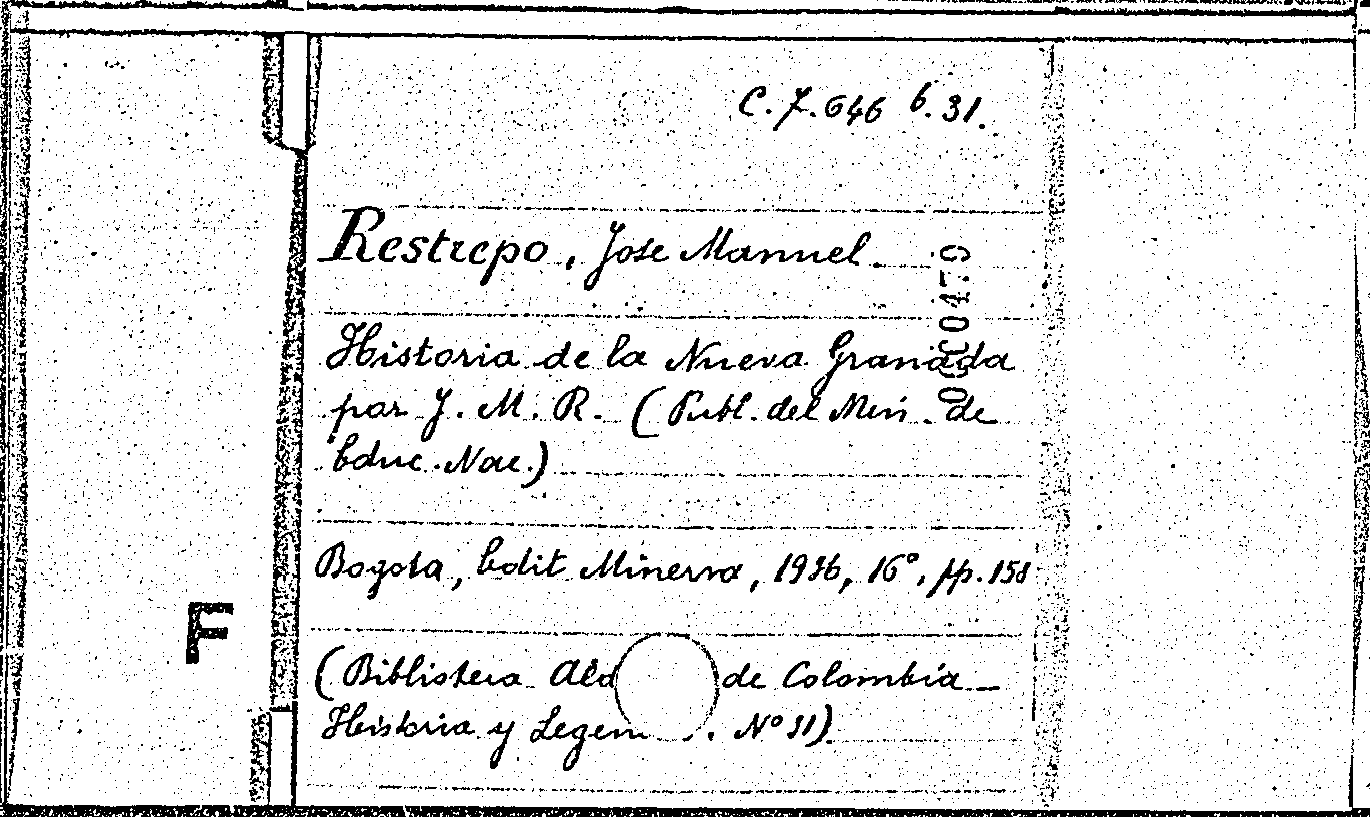 C.7.646 6.31.
Restrepo, Jose Manuel.
Historia de la Nueva Granada
por J. M. R. (Publ. del Min. de
Educ. Nac.)
Bogota, Edit Minerva, 1936, 16°, pp. 158
F
(Biblioteca Ald de Colombia
Historia y Legen . N° 31)